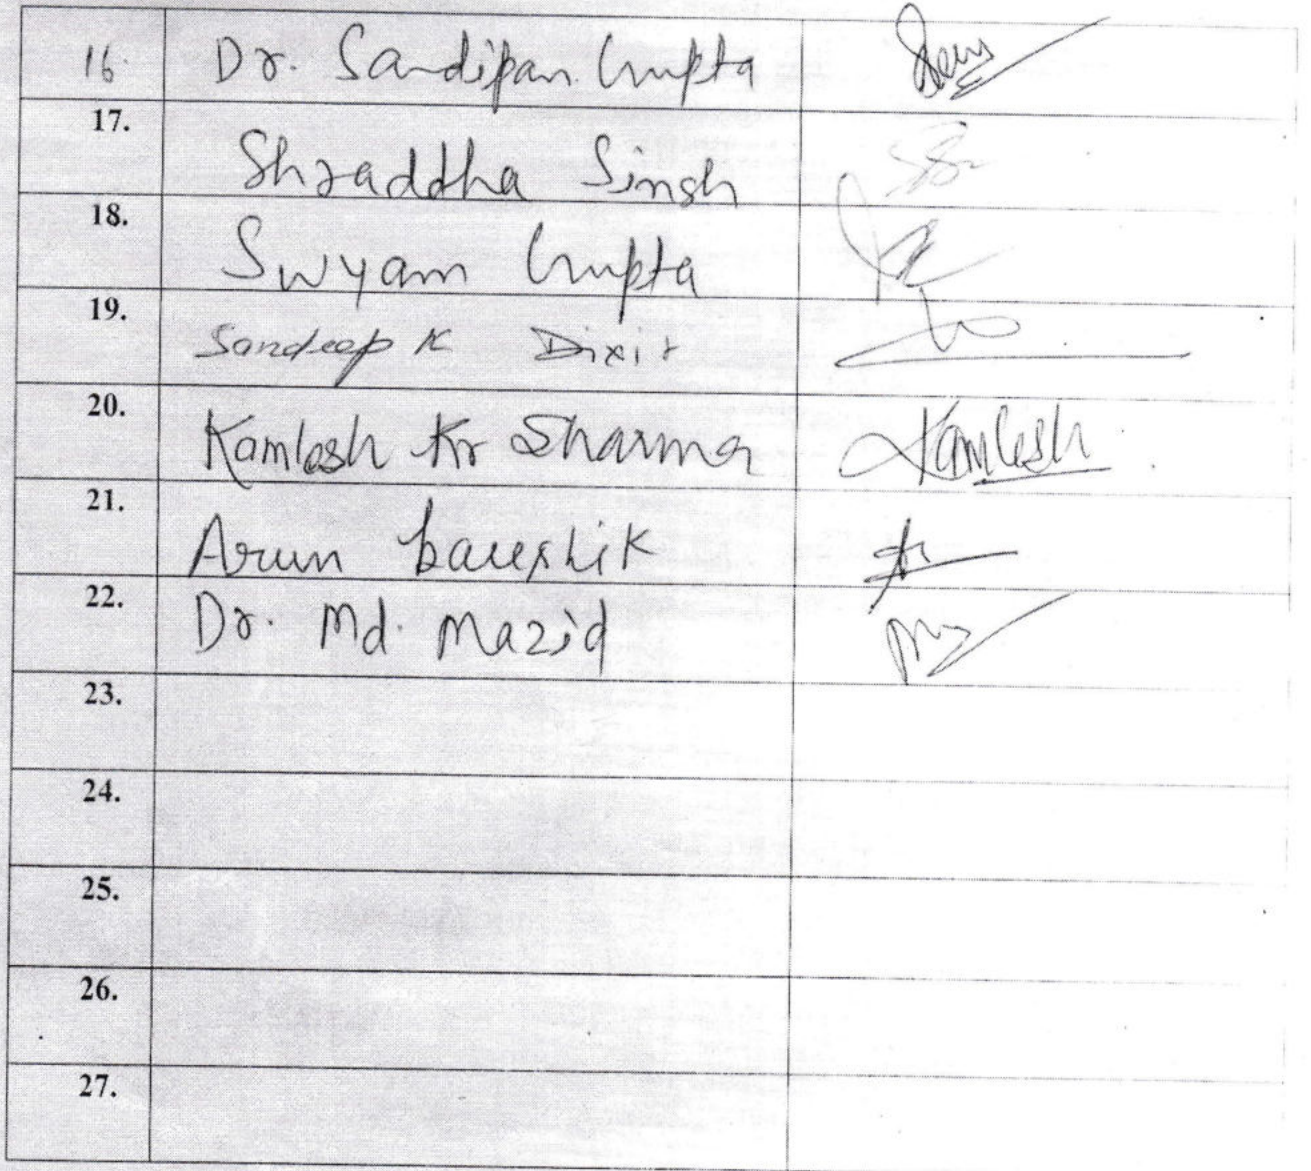 16. Dr. Sandipan Gupta
17. Shraddha Singh
18. Swyam Gupta
19. Sandeep K Dixit
20. Kamlesh Kr Sharma Kamlesh
21. Arun kaushik
22. Dr. Md. Mazid
23.
24.
25.
26.
27.